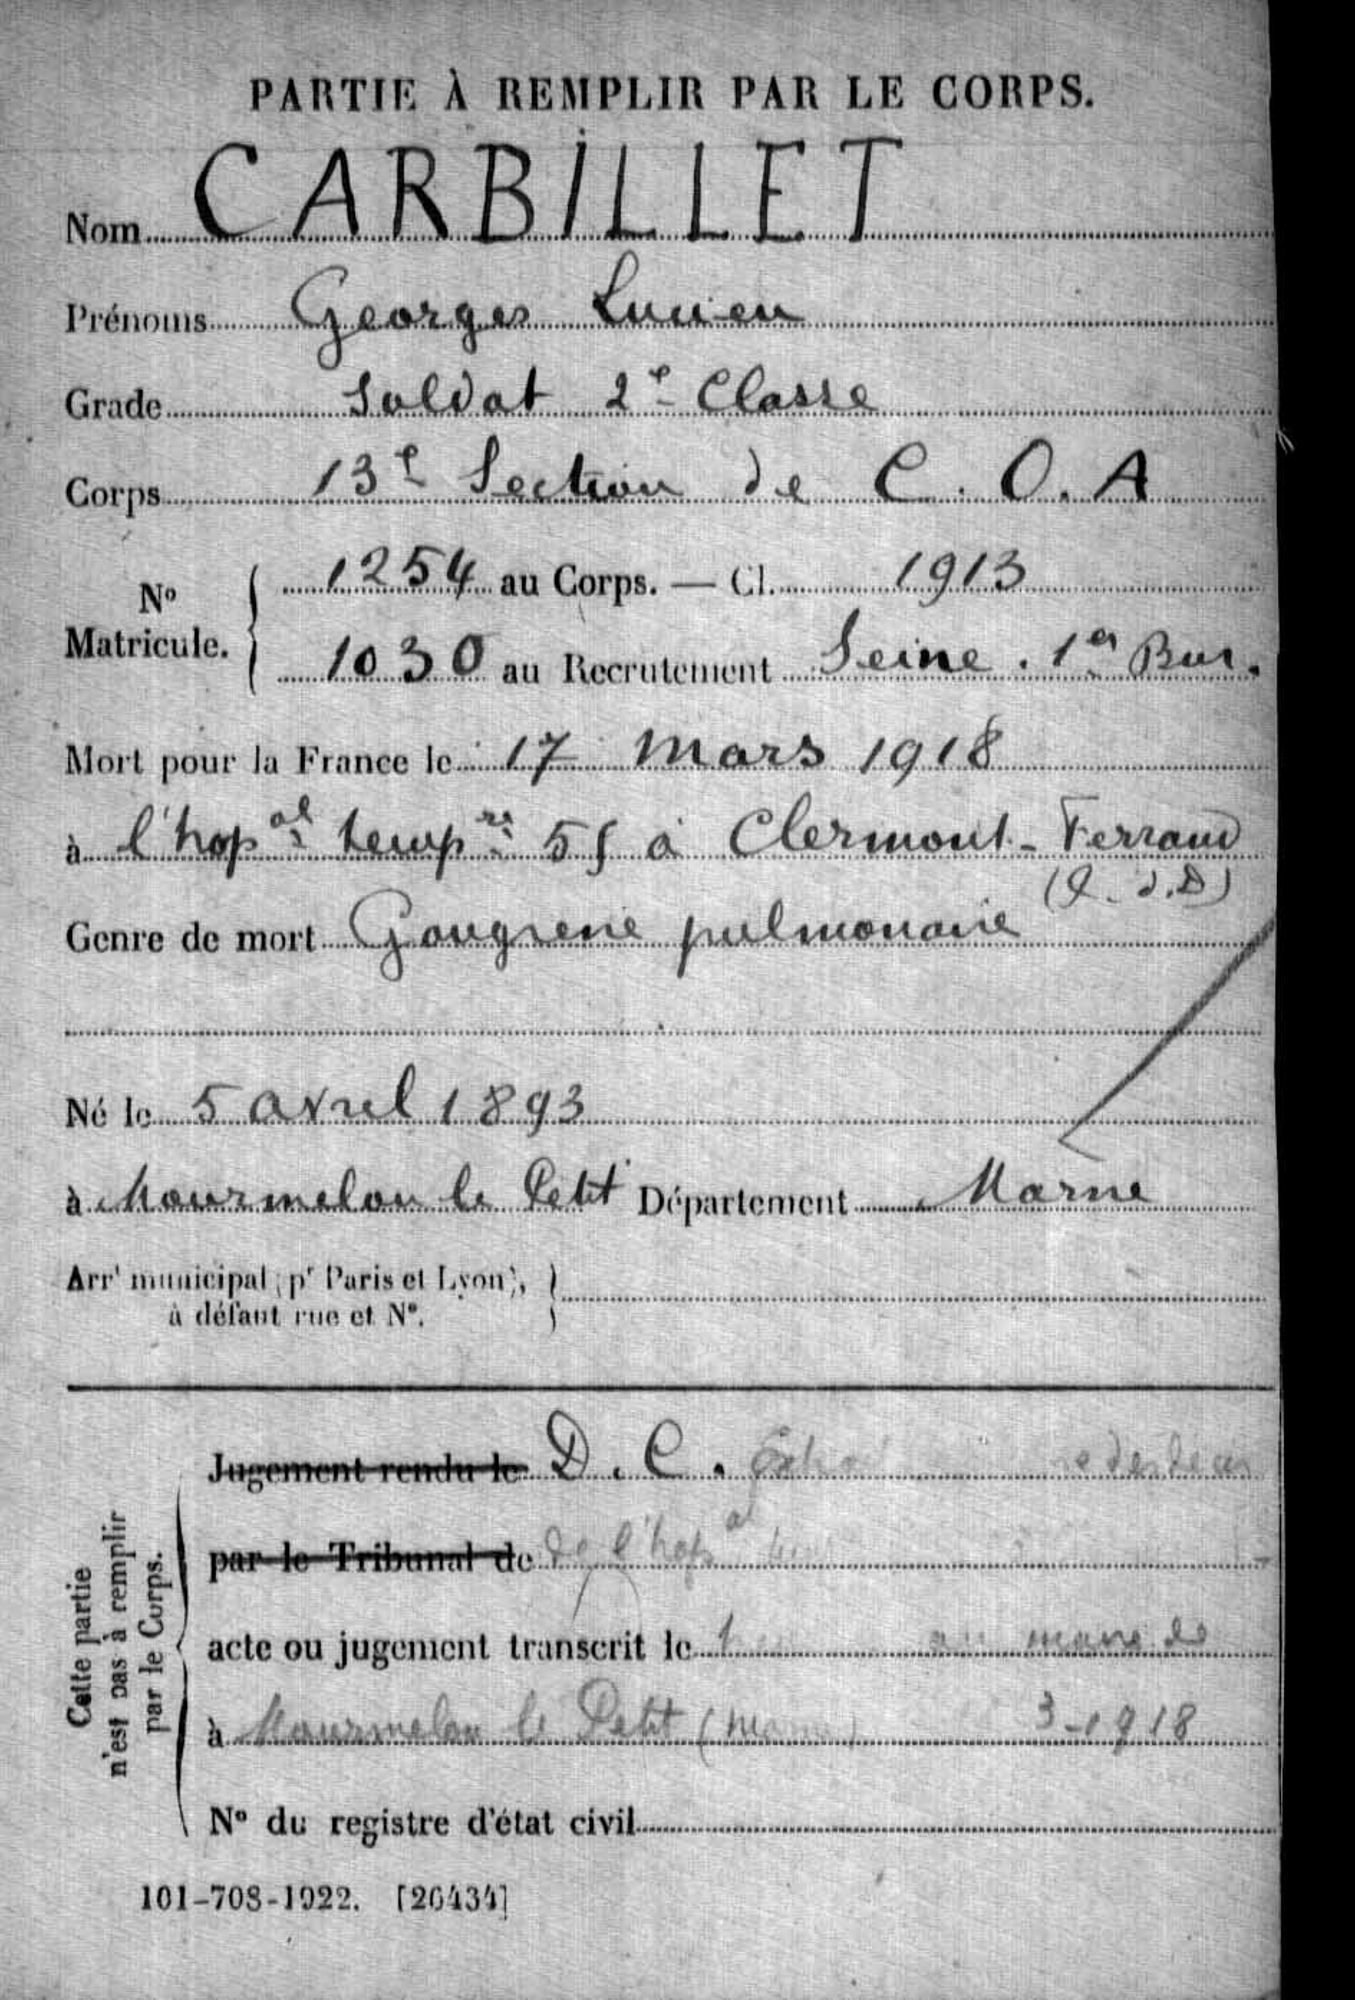 PARTIE À REMPLIR PAR LE CORPS.
Nom CARBILLET
Prénoms Georges Lucien
Grade Soldat 2e Classe
Corps 13e Section de C. O. A
No Matricule. 1254 au Corps. — Cl. 1913
1030 au Recrutement Seine. 1er Bur.
Mort pour la France le 17 mars 1918
à l'hopal tempre 55 à Clermont-Ferrand
(P. d. D)
Genre de mort Gangrene pulmonaire
Né le 5 avril 1893
à Mourmelon le Petit Département Marne
Arrt municipal (pr Paris et Lyon),
à défaut rue et No.
Cette partie
n'est pas à remplir
par le Corps.
Jugement rendu le D. C.
par le Tribunal de de l'hopal
acte ou jugement transcrit le
à Mourmelon le Petit (Marne) 3-1918
No du registre d'état civil
101-708-1922. [26434]